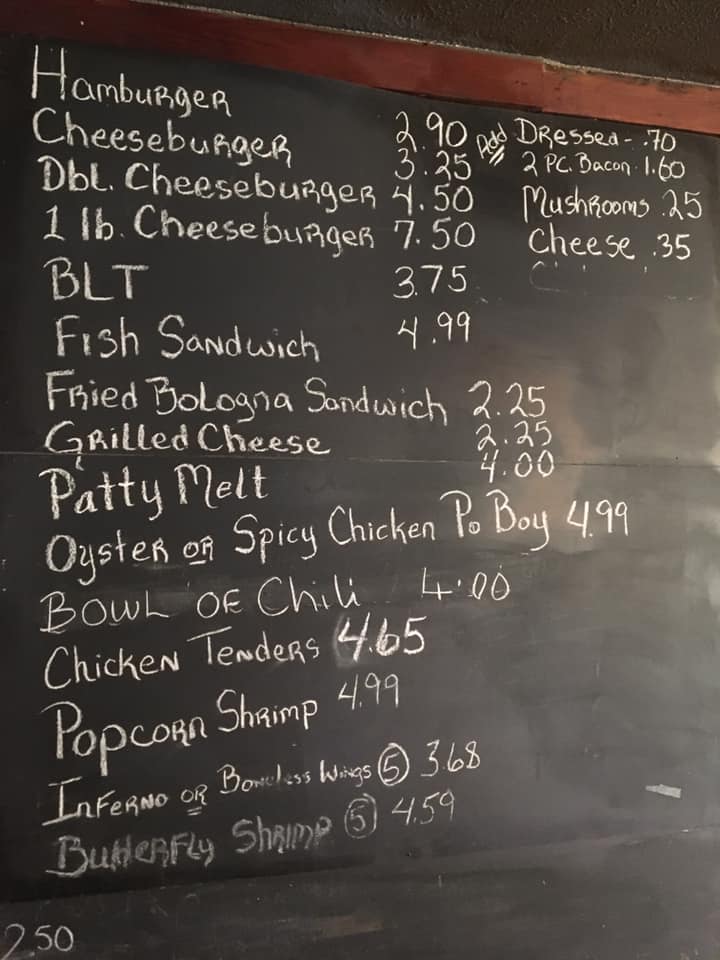 Hamburger 2.90
Cheeseburger 3.25
Dbl. Cheeseburger 4.50
1 lb. Cheeseburger 7.50
BLT 3.75
Fish Sandwich 4.99
Fried Bologna Sandwich 2.25
Grilled Cheese 2.25
Patty Melt 4.00
Oyster or Spicy Chicken Po Boy 4.99
Bowl of Chili 4.00
Chicken Tenders 4.65
Popcorn Shrimp 4.99
Inferno or Boneless Wings 5 3.68
Butterfly Shrimp 5 4.59
2.50
Add Dressed - .70
2 Pc. Bacon 1.60
Mushrooms .25
Cheese .35